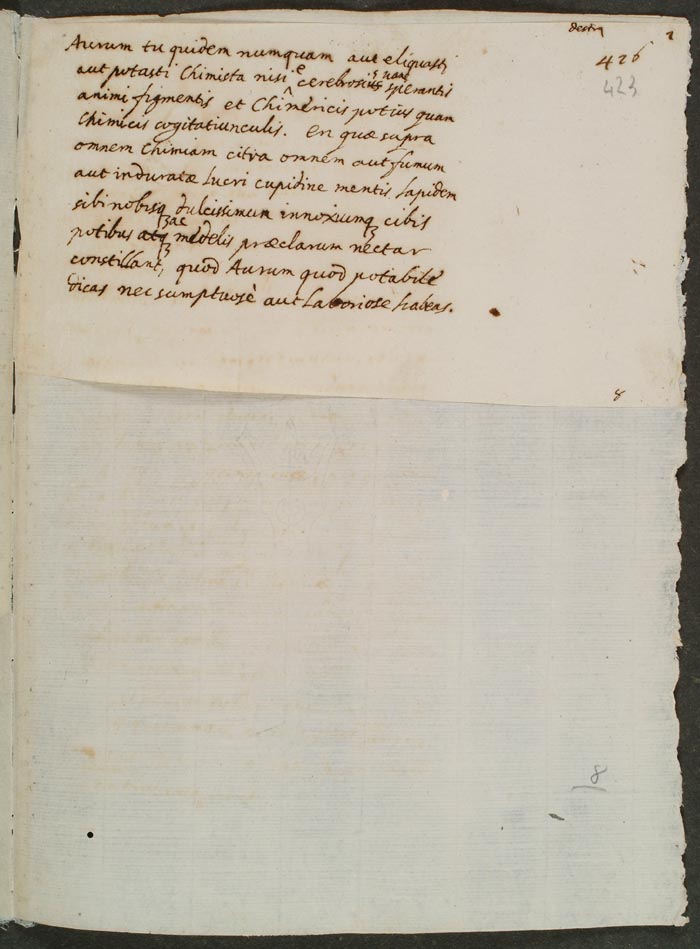 destra
2
426
423
Aurum tu quidem numquam aut eliquasti
aut potasti Chimista nisi è cerebrosius sperantis
animi figmentis et Chimericis potius quam
Chimicis cogitatiunculis. En quæ supra
omnem Chimiam citra omnem aut fumum
aut induratæ lucri cupidine mentis lapidem
sibi nobisq dulcissimum innoxiumq cibis
potibus ac medelis præclarum nectar
constillant, quod Aurum quod potabile
dicas nec sumptuosè aut Laboriose habeas.
8
8